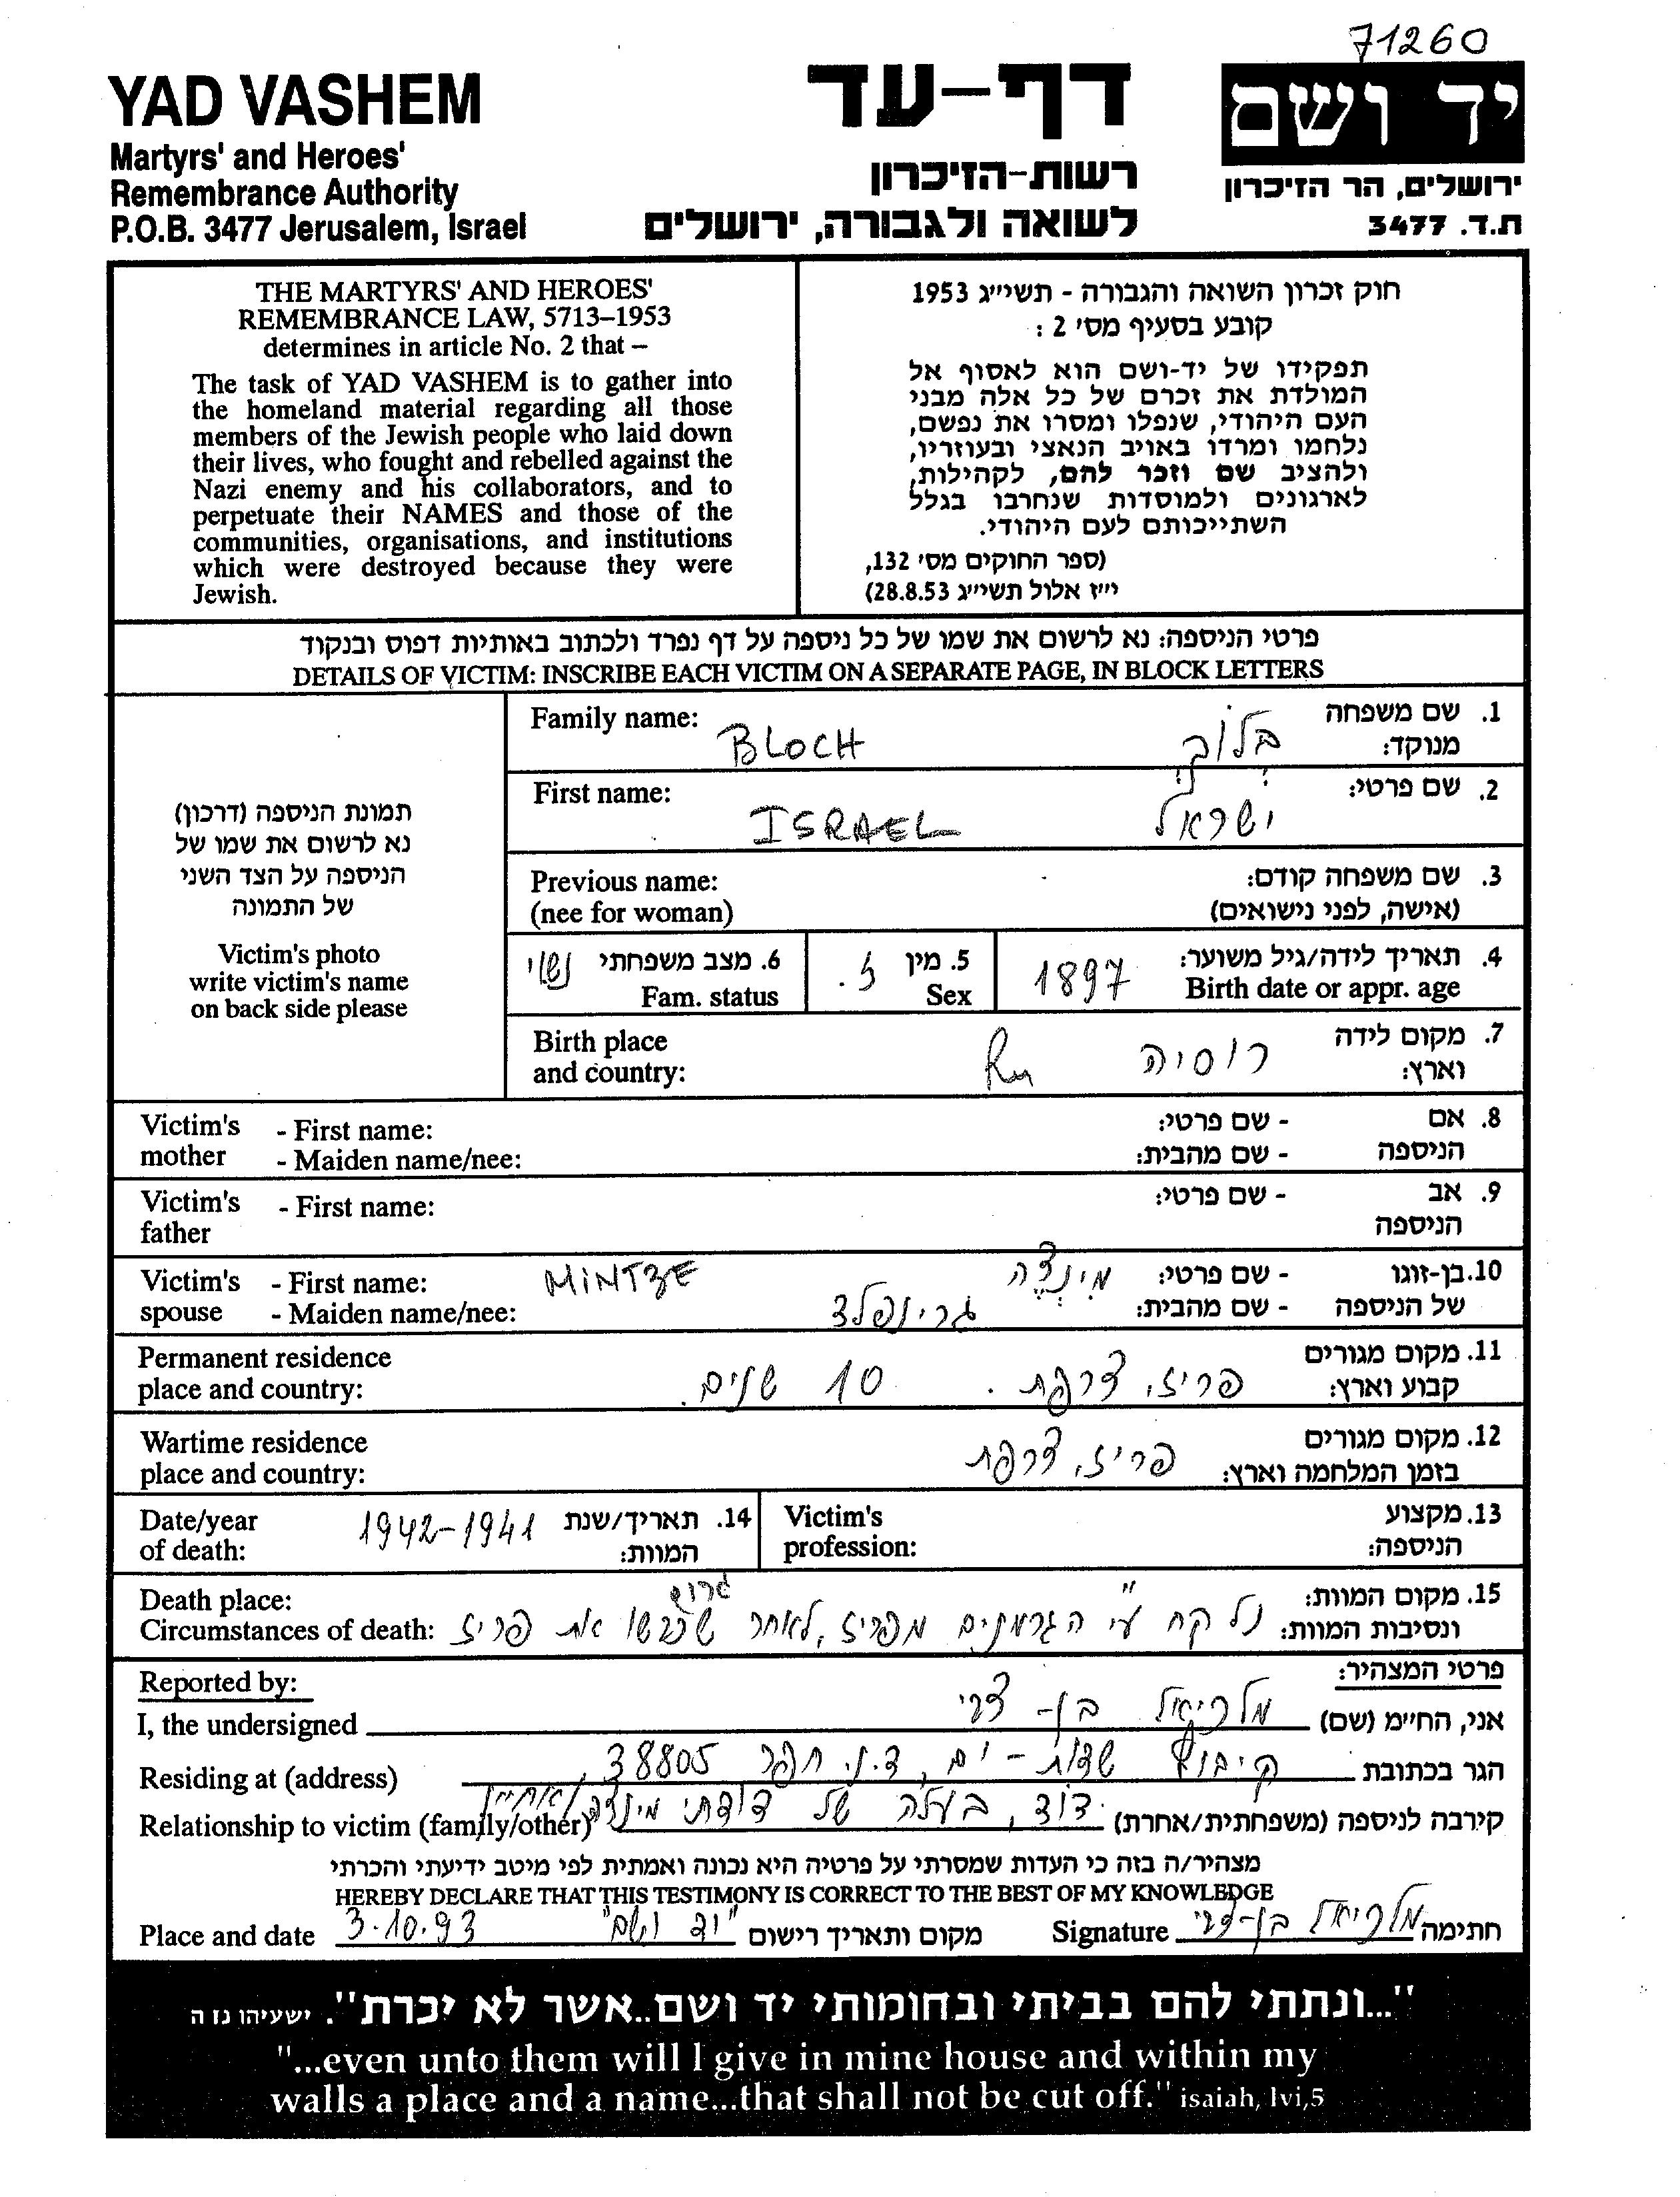 71260
YAD VASHEM
Martyrs' and Heroes'
Remembrance Authority
P.O.B. 3477 Jerusalem, Israel
דף-עד
רשות-הזיכרון
לשואה ולגבורה, ירושלים
יד ושם
ירושלים, הר הזיכרון
ת.ד. 3477
THE MARTYRS' AND HEROES'
REMEMBRANCE LAW, 5713–1953
determines in article No. 2 that –
The task of YAD VASHEM is to gather into
the homeland material regarding all those
members of the Jewish people who laid down
their lives, who fought and rebelled against the
Nazi enemy and his collaborators, and to
perpetuate their NAMES and those of the
communities, organisations, and institutions
which were destroyed because they were
Jewish.
חוק זכרון השואה והגבורה - תשי״ג 1953
קובע בסעיף מס׳ 2 :
תפקידו של יד-ושם הוא לאסוף אל
המולדת את זכרם של כל אלה מבני
העם היהודי, שנפלו ומסרו את נפשם,
נלחמו ומרדו באויב הנאצי ובעוזריו,
ולהציב שם וזכר להם, לקהילות,
לארגונים ולמוסדות שנחרבו בגלל
השתייכותם לעם היהודי.
(ספר החוקים מס׳ 132,
י״ז אלול תשי״ג 28.8.53)
פרטי הניספה: נא לרשום את שמו של כל ניספה על דף נפרד ולכתוב באותיות דפוס ובנקוד
DETAILS OF VICTIM: INSCRIBE EACH VICTIM ON A SEPARATE PAGE, IN BLOCK LETTERS
תמונת הניספה (דרכון)
נא לרשום את שמו של
הניספה על הצד השני
של התמונה
Victim's photo
write victim's name
on back side please
Family name: BLOCH בלוך 1. שם משפחה
מנוקד:
First name: ISRAEL ישראל 2. שם פרטי:
Previous name: 3. שם משפחה קודם:
(nee for woman) (אישה, לפני נישואים)
4. תאריך לידה/גיל משוער: 1897
Birth date or appr. age
5. מין ז.
Sex
6. מצב משפחתי נשוי
Fam. status
Birth place Ru רוסיה 7. מקום לידה
and country: וארץ:
Victim's - First name: - שם פרטי: 8. אם
mother - Maiden name/nee: - שם מהבית: הניספה
Victim's - First name: - שם פרטי: 9. אב
father הניספה
Victim's - First name: MINTZE מינצה - שם פרטי: 10. בן-זוגו
spouse - Maiden name/nee: גרינפלד - שם מהבית: של הניספה
Permanent residence 11. מקום מגורים
place and country: פריז, צרפת. 10 שנים. קבוע וארץ:
Wartime residence 12. מקום מגורים
place and country: פריז, צרפת בזמן המלחמה וארץ:
Date/year 1942-1941 14. תאריך/שנת
of death: המוות:
Victim's 13. מקצוע
profession: הניספה:
Death place: 15. מקום המוות:
Circumstances of death: נלקח ע״י הגרמנים מפריז, לאחר שכבשו את פריז ונסיבות המוות:
Reported by: פרטי המצהיר:
I, the undersigned מלכיאל בן-צבי אני, החיימ (שם)
Residing at (address) קיבוץ שדות-ים, ד.נ. חפר 38805 הגר בכתובת
Relationship to victim (family/other) דוד, בעלה של דודתי מינצה קירבה לניספה (משפחתית/אחרת)
מצהיר/ה בזה כי העדות שמסרתי על פרטיה היא נכונה ואמתית לפי מיטב ידיעתי והכרתי
HEREBY DECLARE THAT THIS TESTIMONY IS CORRECT TO THE BEST OF MY KNOWLEDGE
Place and date 3.10.93 "יד ושם" מקום ותאריך רישום Signature מלכיאל בן-צבי חתימה
"...ונתתי להם בביתי ובחומותי יד ושם..אשר לא יכרת". ישעיהו נז ה
"...even unto them will I give in mine house and within my
walls a place and a name...that shall not be cut off." isaiah, lvi,5